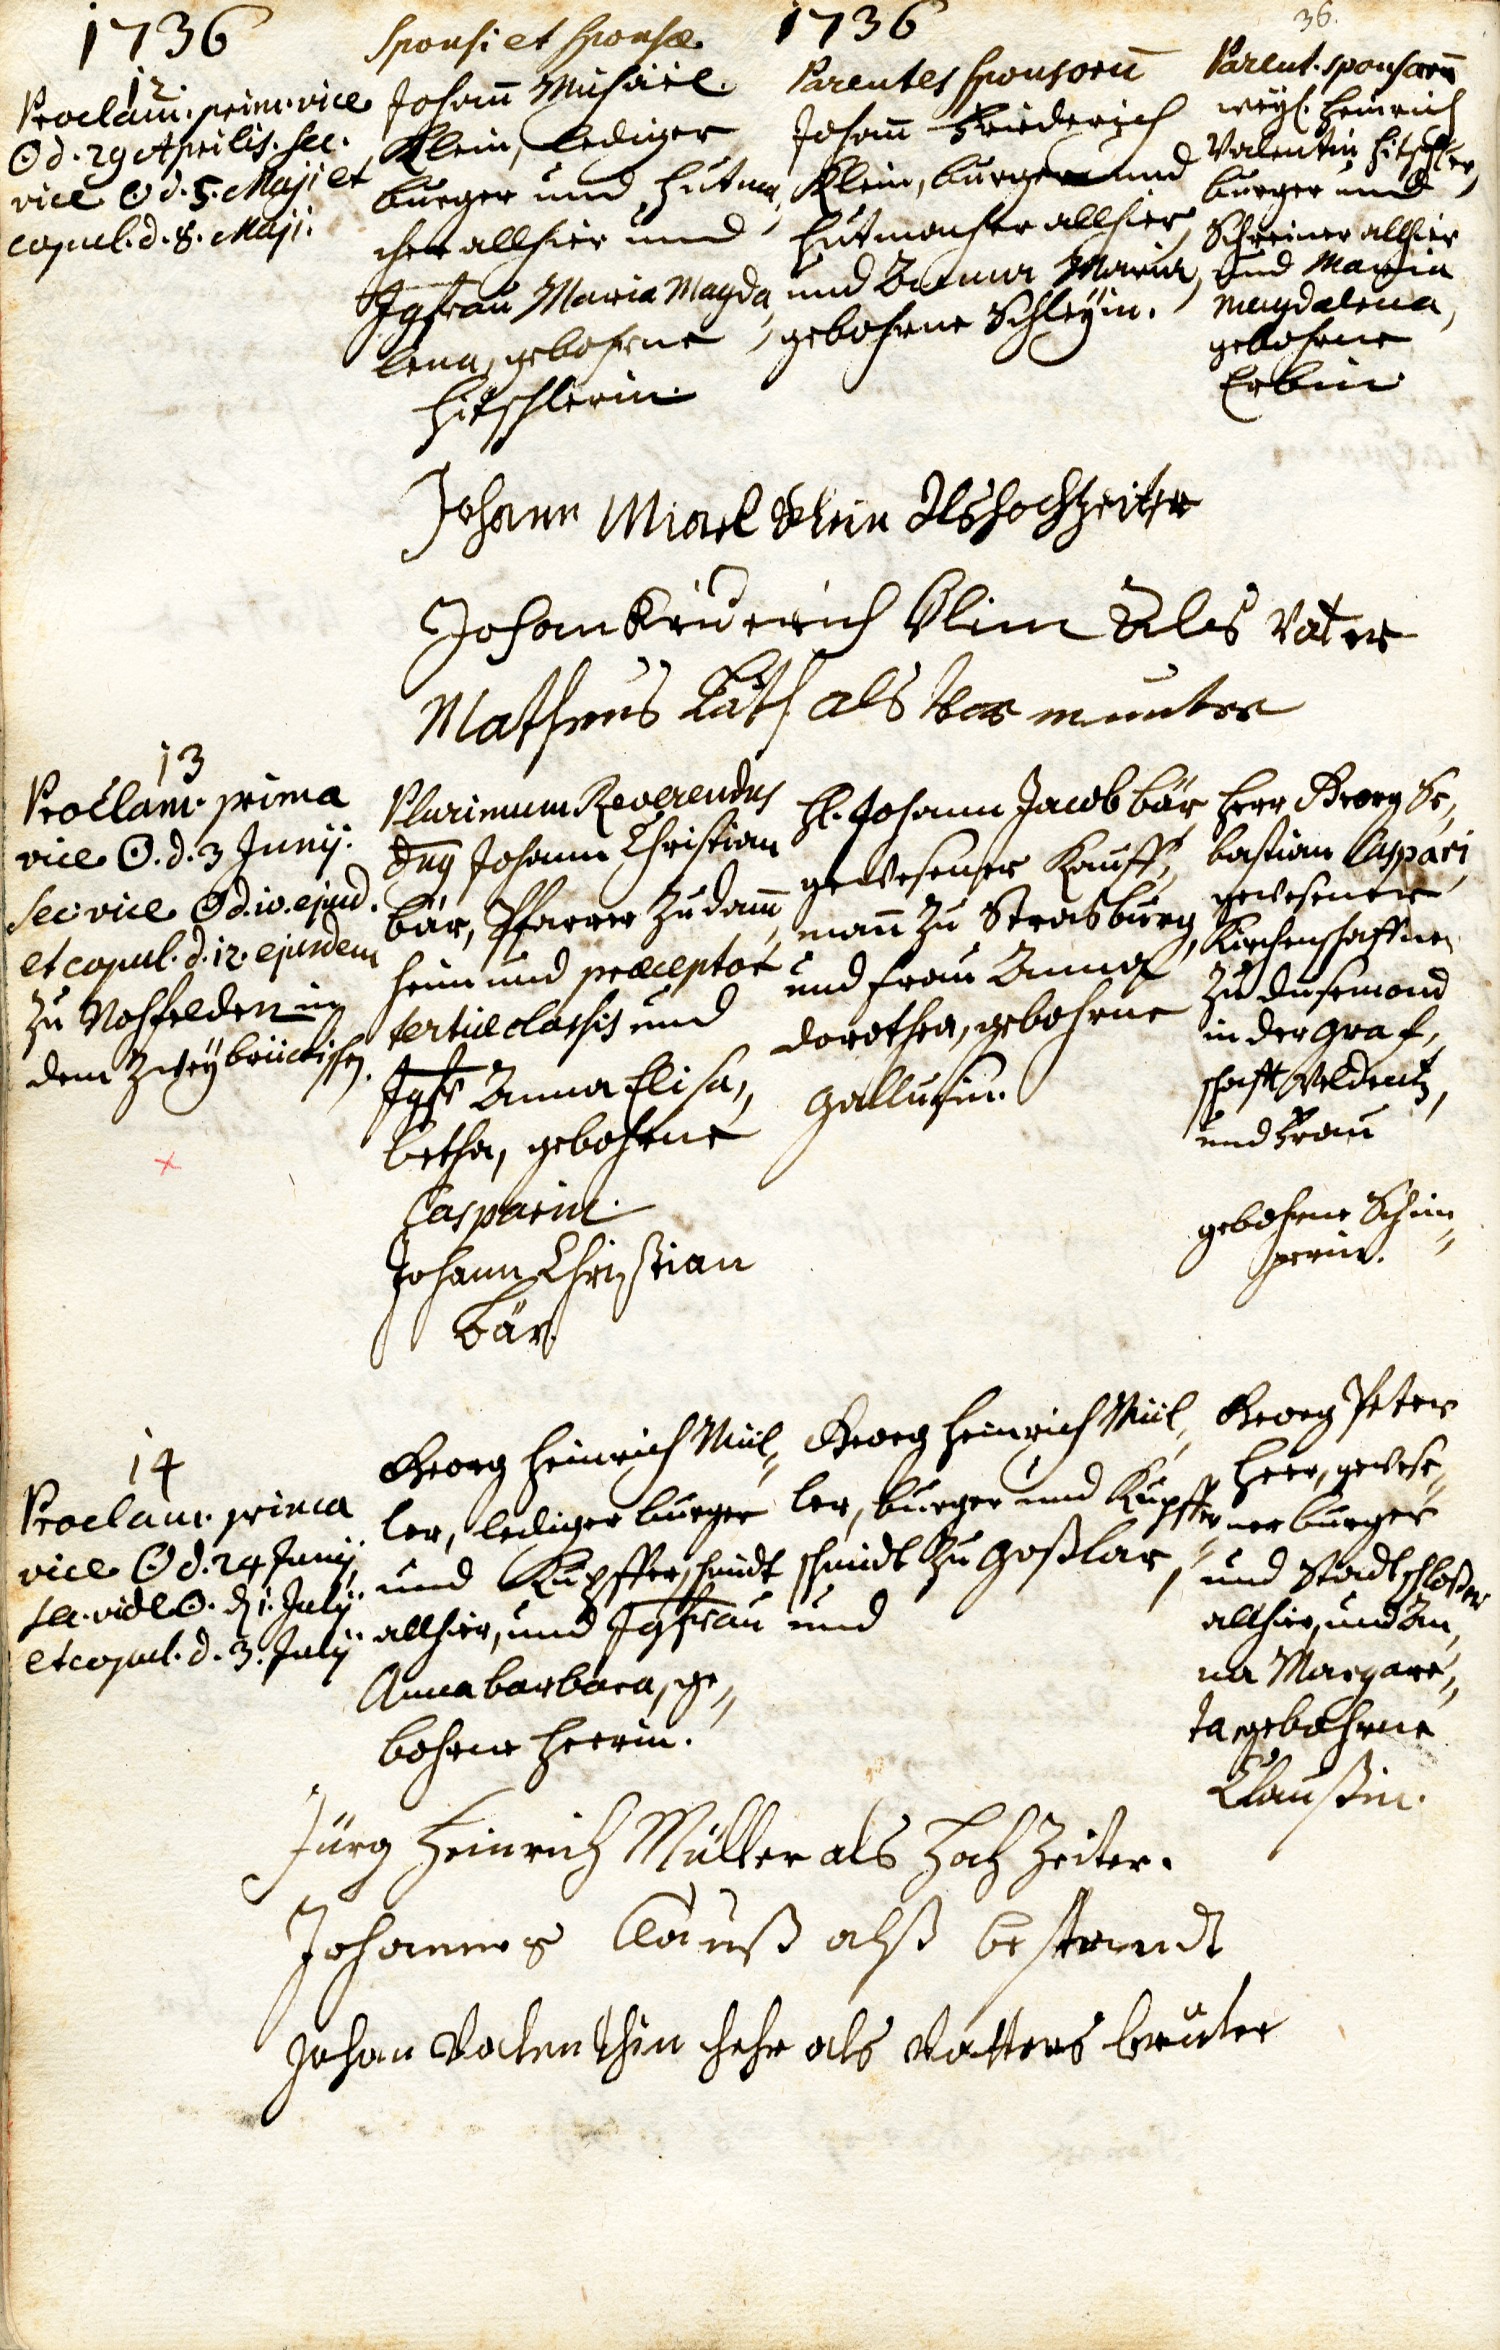 1736
Sponsi et sponsæ
1736
36.
12.
Proclam. prim. vice
☉ d. 29 Aprilis. sec.
vice ☉ d. 5. Maji et
copul. d. 8. Maji.
Johann Michael
Klein, lediger
burger und Hutma,
cher allhier und
Jgfrau Maria Magda,
lena, gebohrne
Hitschlerin.
Parentes sponsorū
Johann Friederich
Klein, burger und
Hutmacher allhier,
und Anna Maria,
gebohrne Schleyin.
Parent. sponsarū
weyl. Heinrich
Valentin Hitschler,
burger und
Schreiner allhier
und Maria
Magdalena,
gebohrne
Erbin
Johann Micael Klein Als hochzeiter
Johan Friderich Klein Als Vater
Matheus Läth als Vor munter
13
Proclam. prima
vice ☉. d. 3 Junij.
sec. vice ☉ d. 10. ejusd.
et copul. d. 12. ejusdem
zu Nohfelden in
dem Zweybrückischen.
Plurimum Reverendus
Dnq Johann Christian
bär, Pfarrer zu Dann,
heim und præceptor
tertiæ classis und
Jgfr Anna Elisa,,
betha, gebohrne
Casparin.
Johann Christian
bär.
H. Johann Jacob bär
gewesener Kauff,
mann zu Strasburg,
und Frau Anna
Dorothea, gebohrne
Gallusin.
Herr Georg Se,
bastian Caspari,
gewesener
Kirchenschaffner
zu Dusemond
in der Graf,
schaft Veldentz,
und Frau
gebohrne Schim,,
perin.
14
Proclam. prima
vice ☉ d. 24 Junij,
sec. vice ☉. d. 1. Julij
et copul. d. 3. Julij
Georg Heinrich Mül,,
ler, lediger burger
und Kupfferschmidt
allhier, und Jgfrau
Anna barbara, ge,,
bohrne Herrin.
Georg Heinrich Mül,
ler, burger und Kupffer,,
schmidt zu Goßlar,
und
Georg Peter
Herr, gewese,,
ner burger
und Stadtschloßer
allhier, und An,
na Margare,,
ta, gebohrne
Claußin.
Jürg Heinrich Müller als Hoch Zeiter.
Johannes Clauß alß beystandt
Johan Valenthin hehr als Vatters bruter